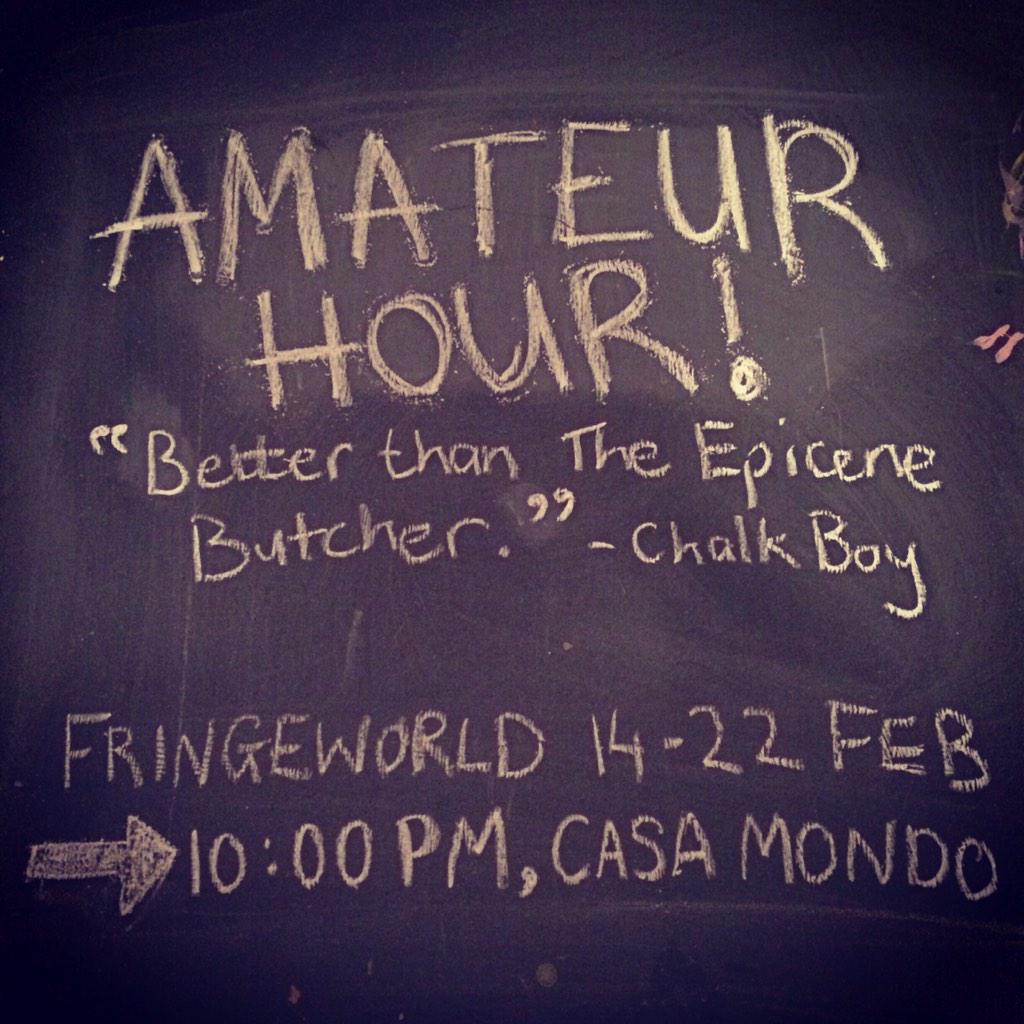 AMATEUR
HOUR!
"Better than The Epicene
Butcher." - Chalk Boy
FRINGEWORLD 14-22 FEB
10:00 PM, CASA MONDO